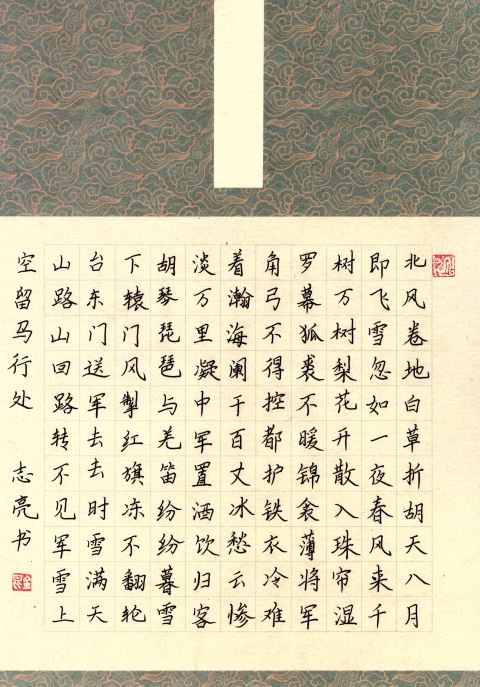 北风卷地白草折胡天八月
即飞雪忽如一夜春风来千
树万树梨花开散入珠帘湿
罗幕狐裘不暖锦衾薄将军
角弓不得控都护铁衣冷难
着瀚海阑干百丈冰愁云惨
淡万里凝中军置酒饮归客
胡琴琵琶与羌笛纷纷暮雪
下辕门风掣红旗冻不翻轮
台东门送军去去时雪满天
山路山回路转不见军雪上
空留马行处 志亮书